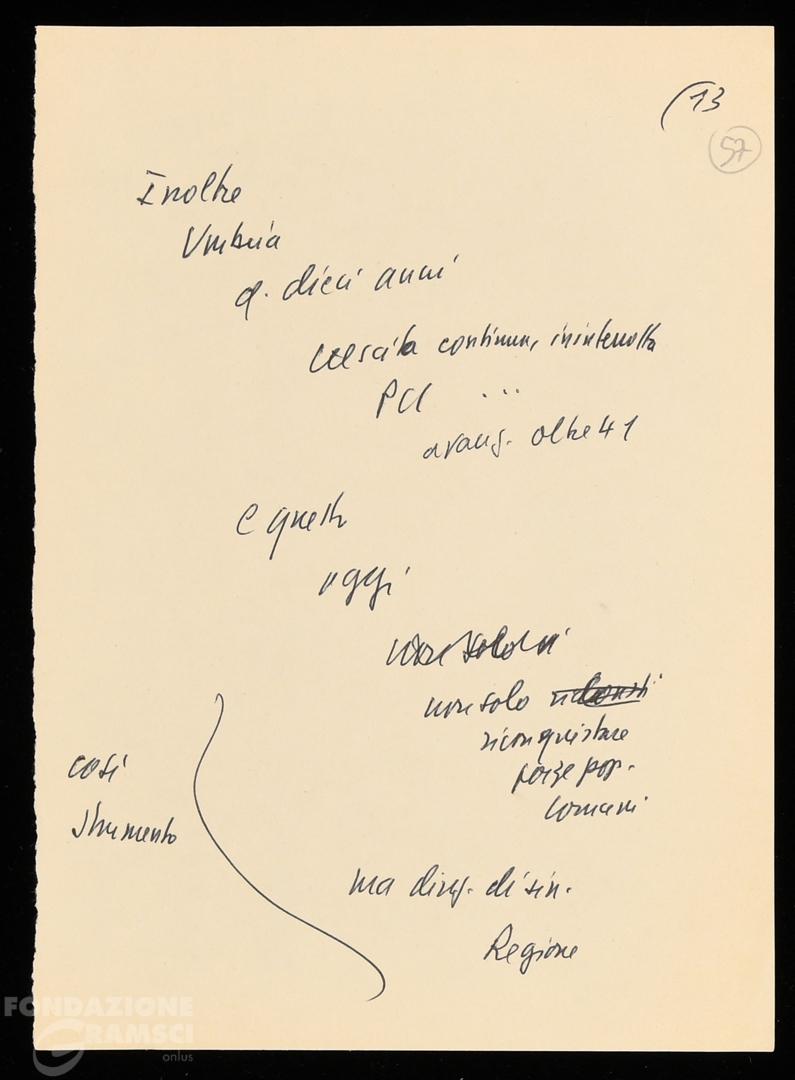 (13
57
Inoltre
Umbria
q. dieci anni
crescita continua, ininterrotta
PCI ...
avanz. oltre 41
e questo
oggi
non solo
non solo
riconquistare
forze pop.
comuni
così
strumento
ma direz. di sin.
Regione
FONDAZIONE
GRAMSCI
onlus